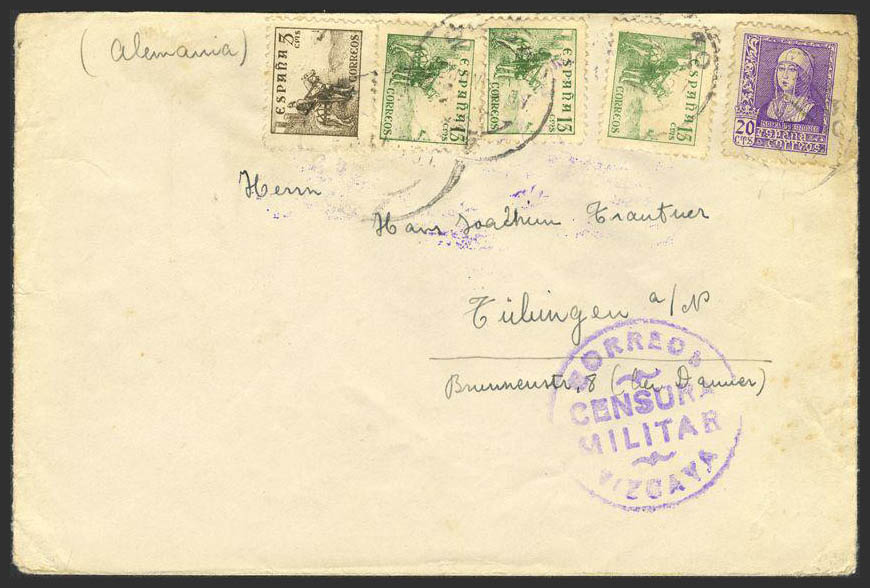 (Alemania)
ESPAÑA 5 CTPS CORREOS
ESPAÑA 15 CTPS CORREOS
ESPAÑA 15 CTPS CORREOS
ESPAÑA 15 CTPS CORREOS
20 CTS ESPAÑA CORREOS
Herrn
Hans Joachim Trautner
Tübingen a/N
Brunnenstr, 8 (bei Danner)
CENSURA
MILITAR
VIZCAYA